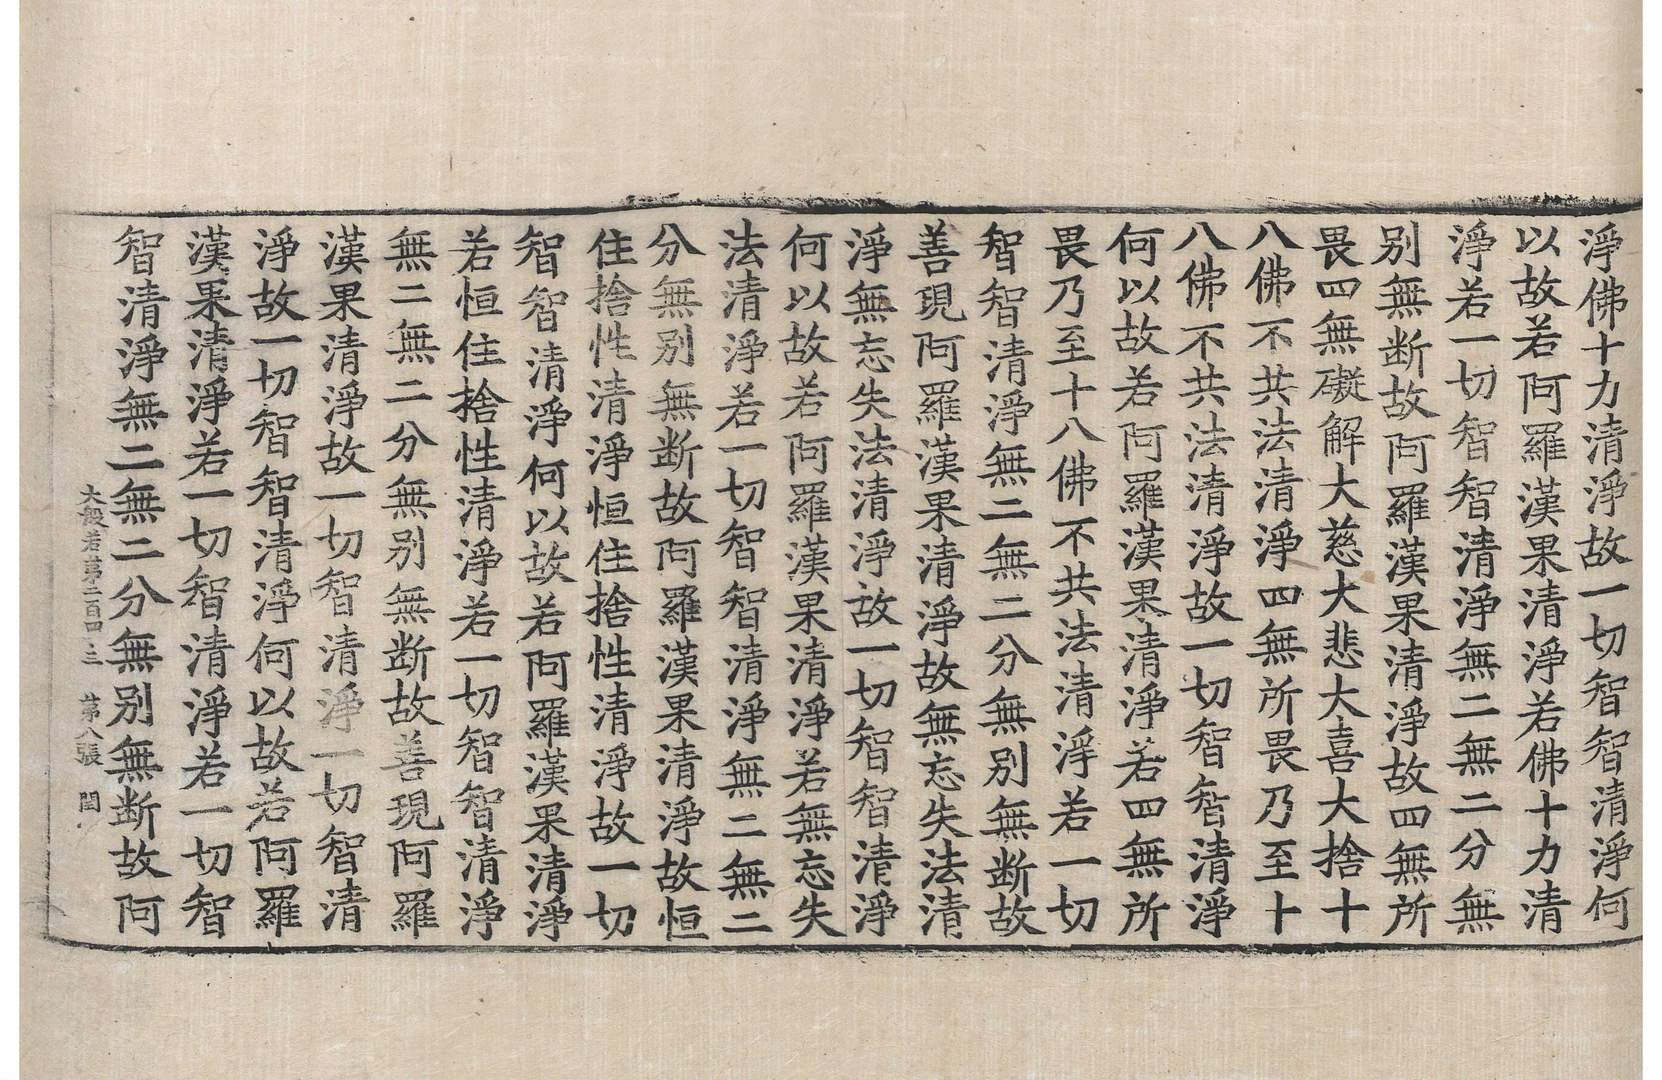 淨佛十力清淨故一切智智清淨何
以故若阿羅漢果清淨若佛十力清
淨若一切智智清淨無二無二分無
别無断故阿羅漢果清淨故四無所
畏四無礙解大慈大悲大喜大捨十
八佛不共法清淨四無所畏乃至十
八佛不共法清淨故一切智智清淨
何以故若阿羅漢果清淨若四無所
畏乃至十八佛不共法清淨若一切
智智清淨無二無二分無别無断故
善現阿羅漢果清淨故無忘失法清
淨無忘失法清淨故一切智智清淨
何以故若阿羅漢果清淨若無忘失
法清淨若一切智智清淨無二無二
分無别無断故阿羅漢果清淨故恒
住捨性清淨恒住捨性清淨故一切
智智清淨何以故若阿羅漢果清淨
若恒住捨性清淨若一切智智清淨
無二無二分無别無断故善現阿羅
漢果清淨故一切智清淨一切智清
淨故一切智智清淨何以故若阿羅
漢果清淨若一切智清淨若一切智
智清淨無二無二分無别無断故阿
大般若第二百四十三 第八張 閏